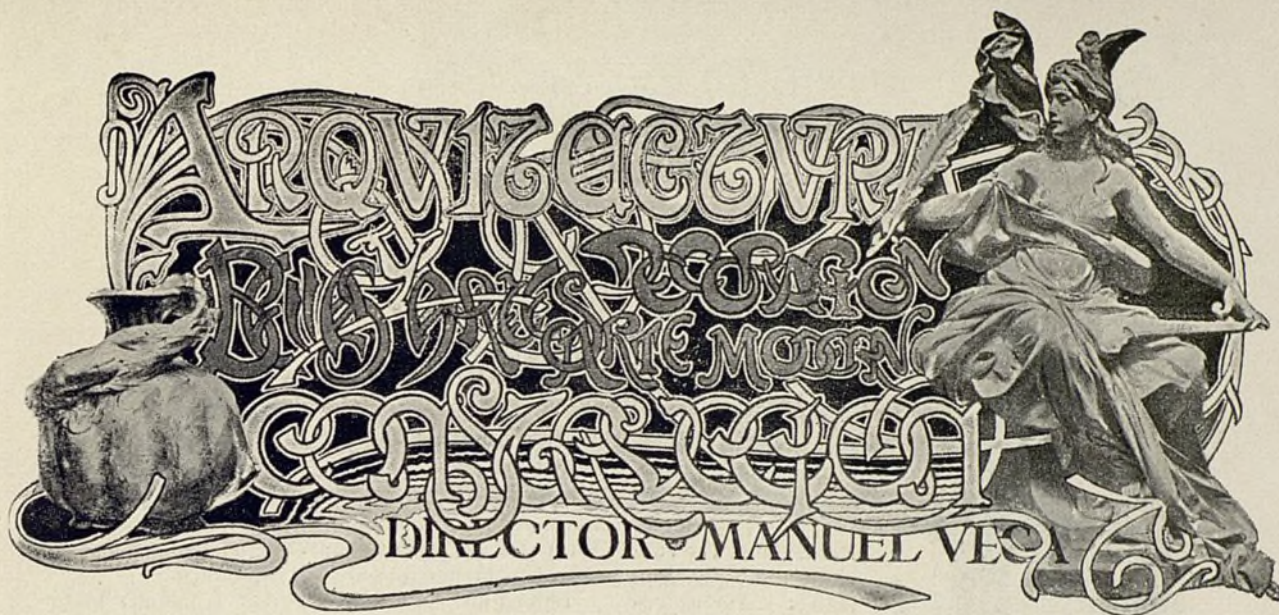 ARQVITECTVRA
BELLAS ARTES DECORACION
ARTE MODERNO
CONSTRUCCIÓN
DIRECTOR MANUEL VEGA